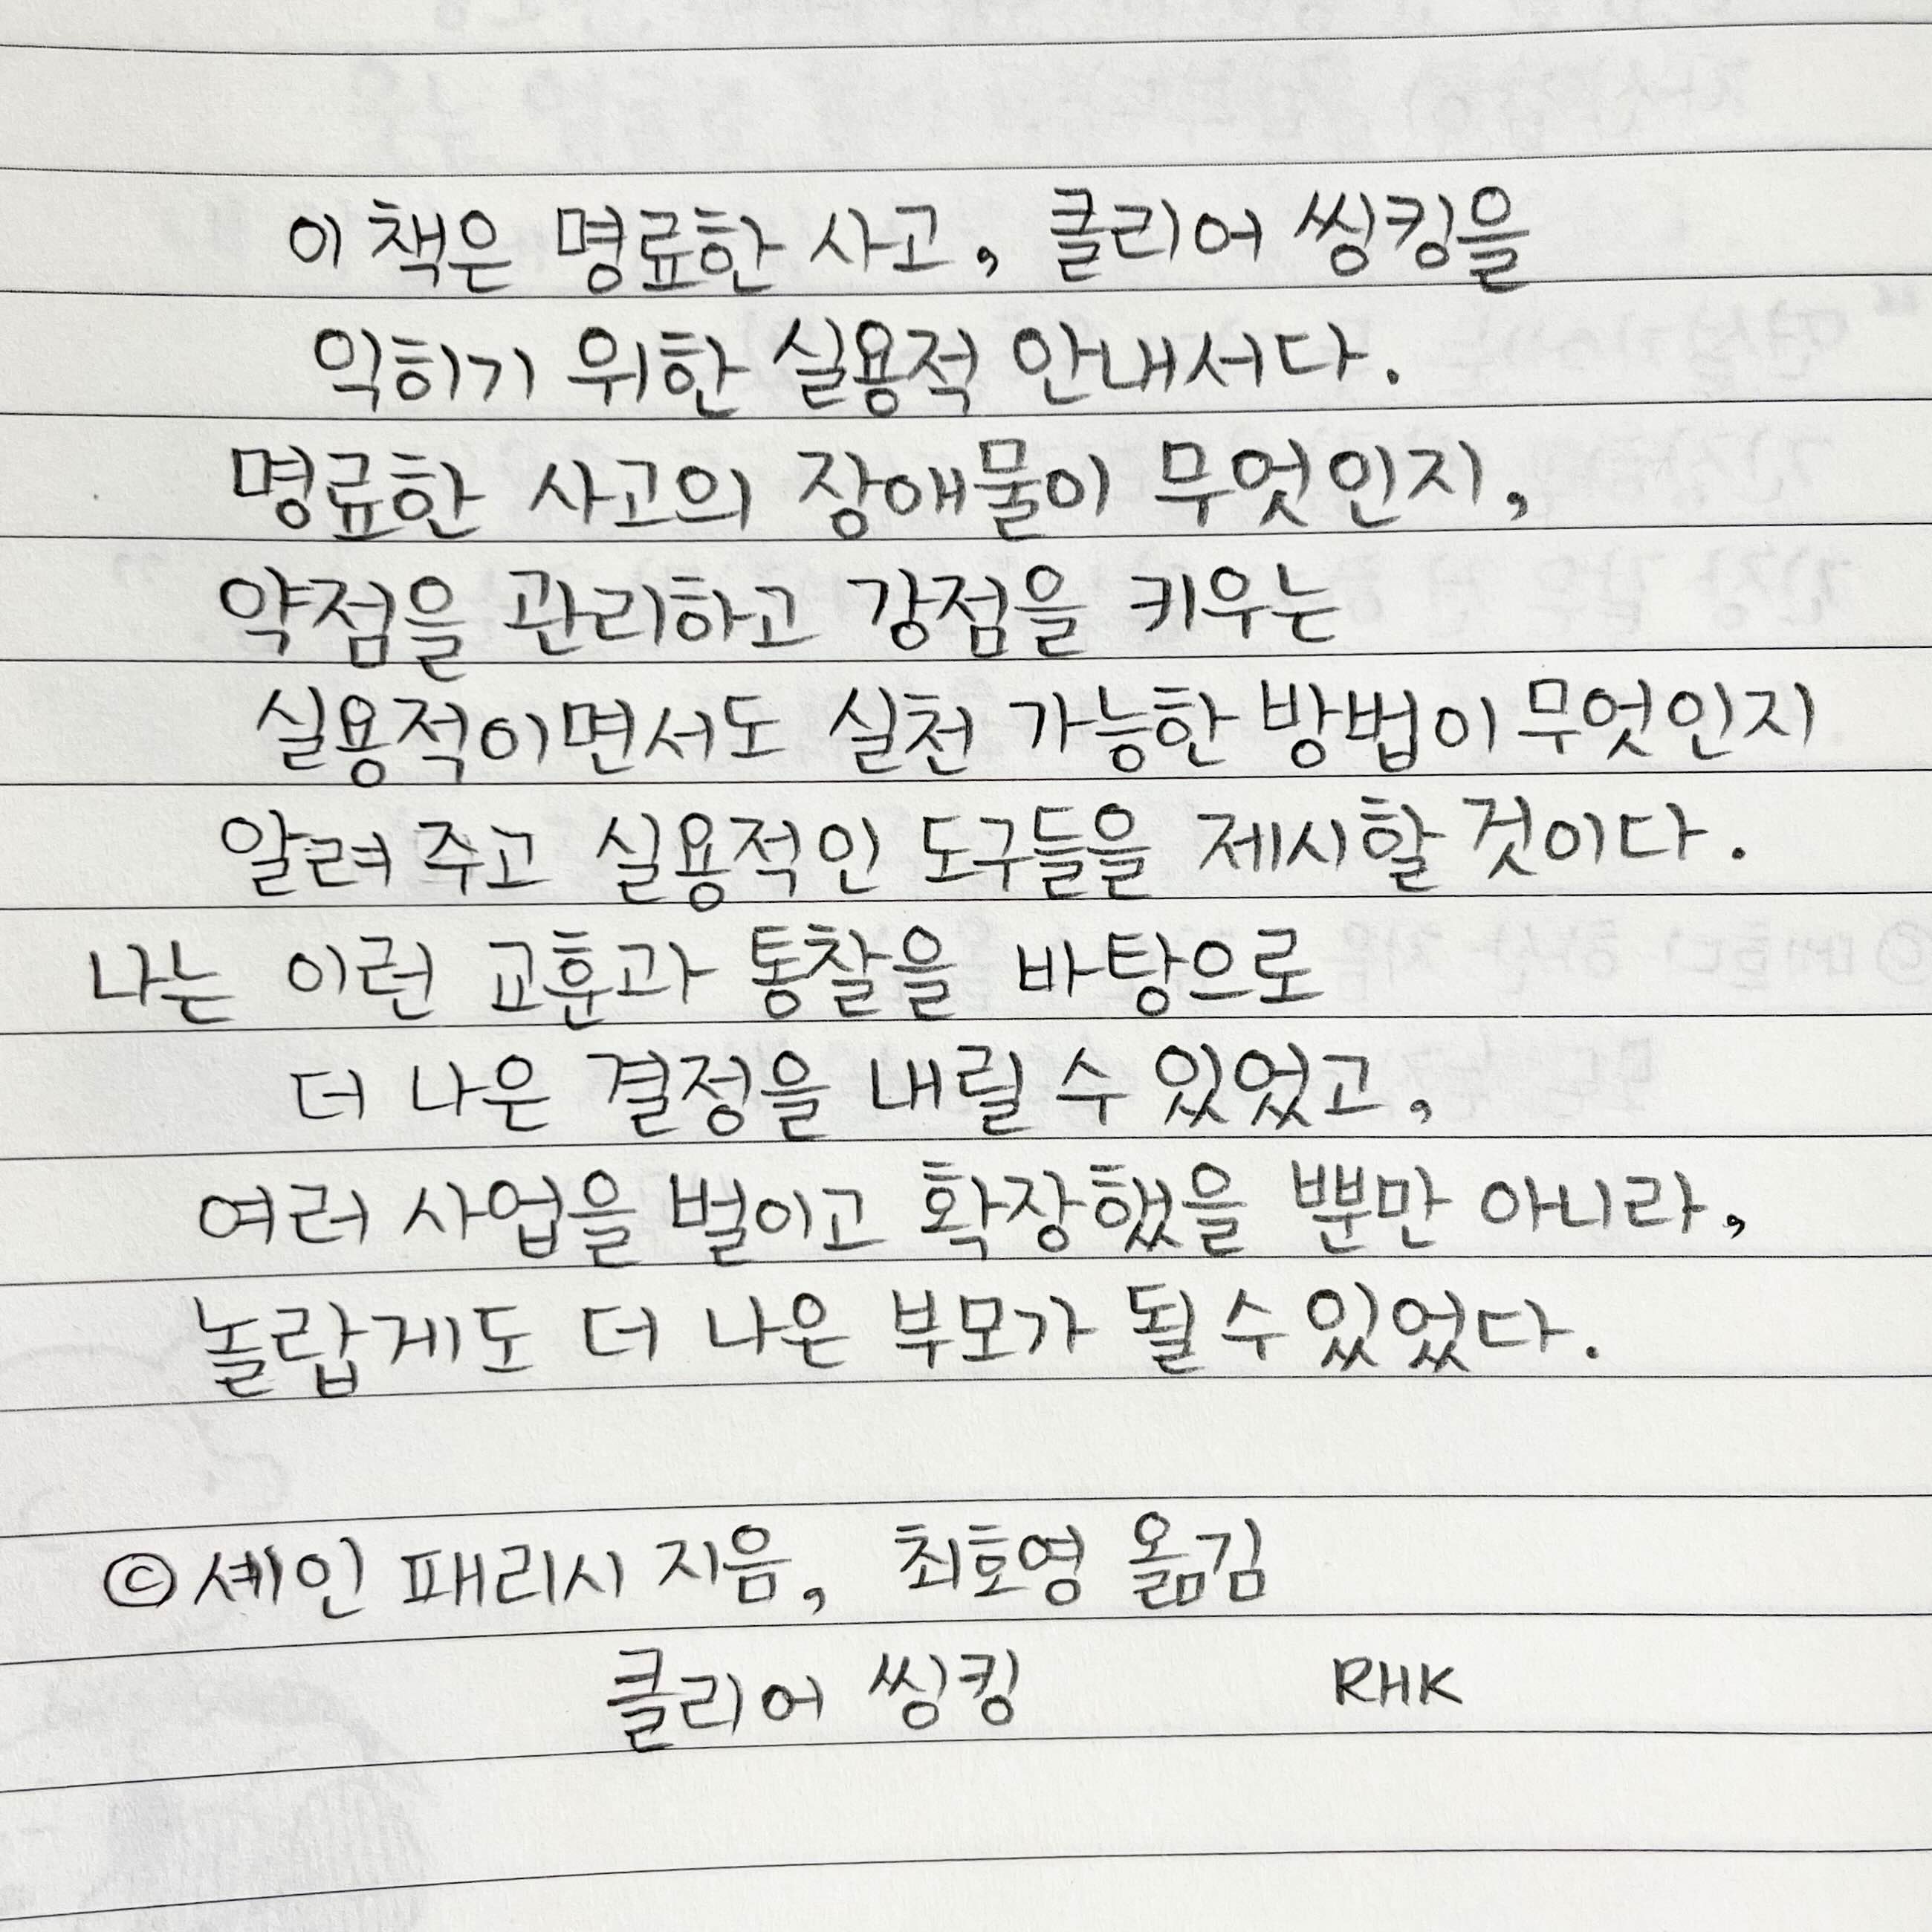 이 책은 명료한 사고, 클리어 씽킹을
익히기 위한 실용적 안내서다.
명료한 사고의 장애물이 무엇인지,
약점을 관리하고 강점을 키우는
실용적이면서도 실천 가능한 방법이 무엇인지
알려 주고 실용적인 도구들을 제시할 것이다.
나는 이런 교훈과 통찰을 바탕으로
더 나은 결정을 내릴 수 있었고,
여러 사업을 벌이고 확장했을 뿐만 아니라,
놀랍게도 더 나은 부모가 될 수 있었다.
© 셰인 패리시 지음, 최호영 옮김
클리어 씽킹 RHK